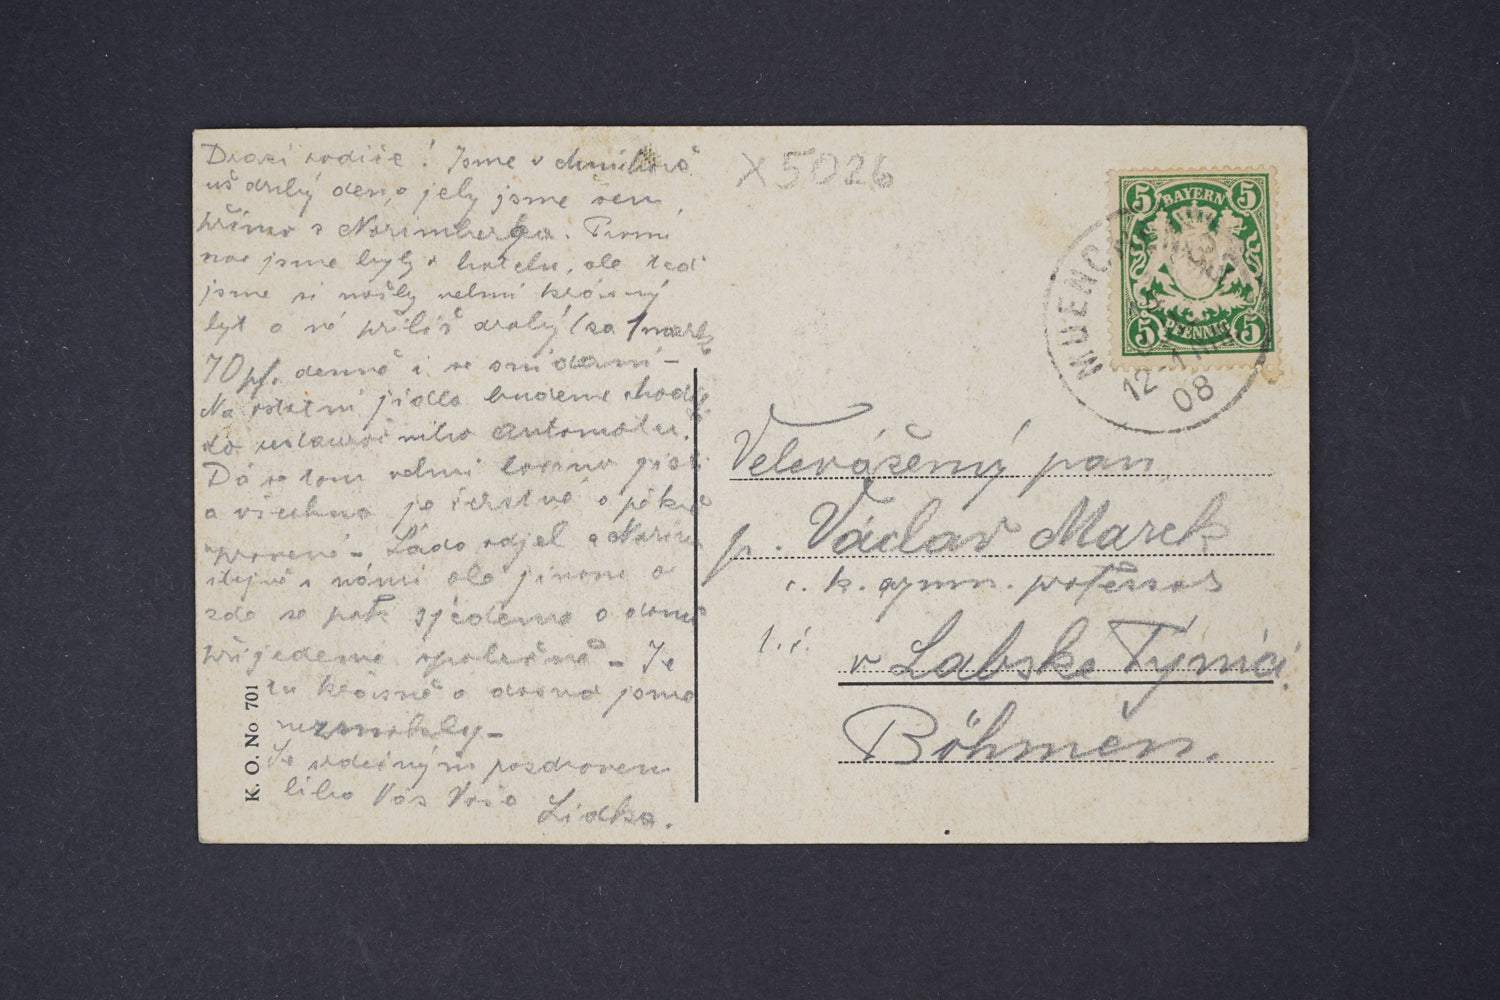 Drazí rodiče! Jsme v Mnichově
už druhý den, jely jsme sem
přímo z Norimberga. První
noc jsme byly v hotelu, ale teď
jsme si našly velmi krásný
byt a né příliš drahý (za 1 mark
70 pf. denně i se snídaní –
Na ostatní jídlo budeme chodit
do restauračního automatu.
Dá se tam velmi lacino jísti
a všechno je čerstvé a pěkně
– Láďo odjel z
stejně s námi ale jinam a
zde se pak sjedeme a domů
přijedeme společně – Je
tu krásně a dosud jsme
nezmokly –
Se srdečným pozdravem
líbá Vás Vaše Lidka.
K. O. No 701
X5026
BAYERN
5 5
5 5
PFENNIG
MUENCHEN
12
08
Velevážený pan
p. Václav Marek
c. k. gymn. profesor
t. č.
v Labské Týnici
Böhmen.